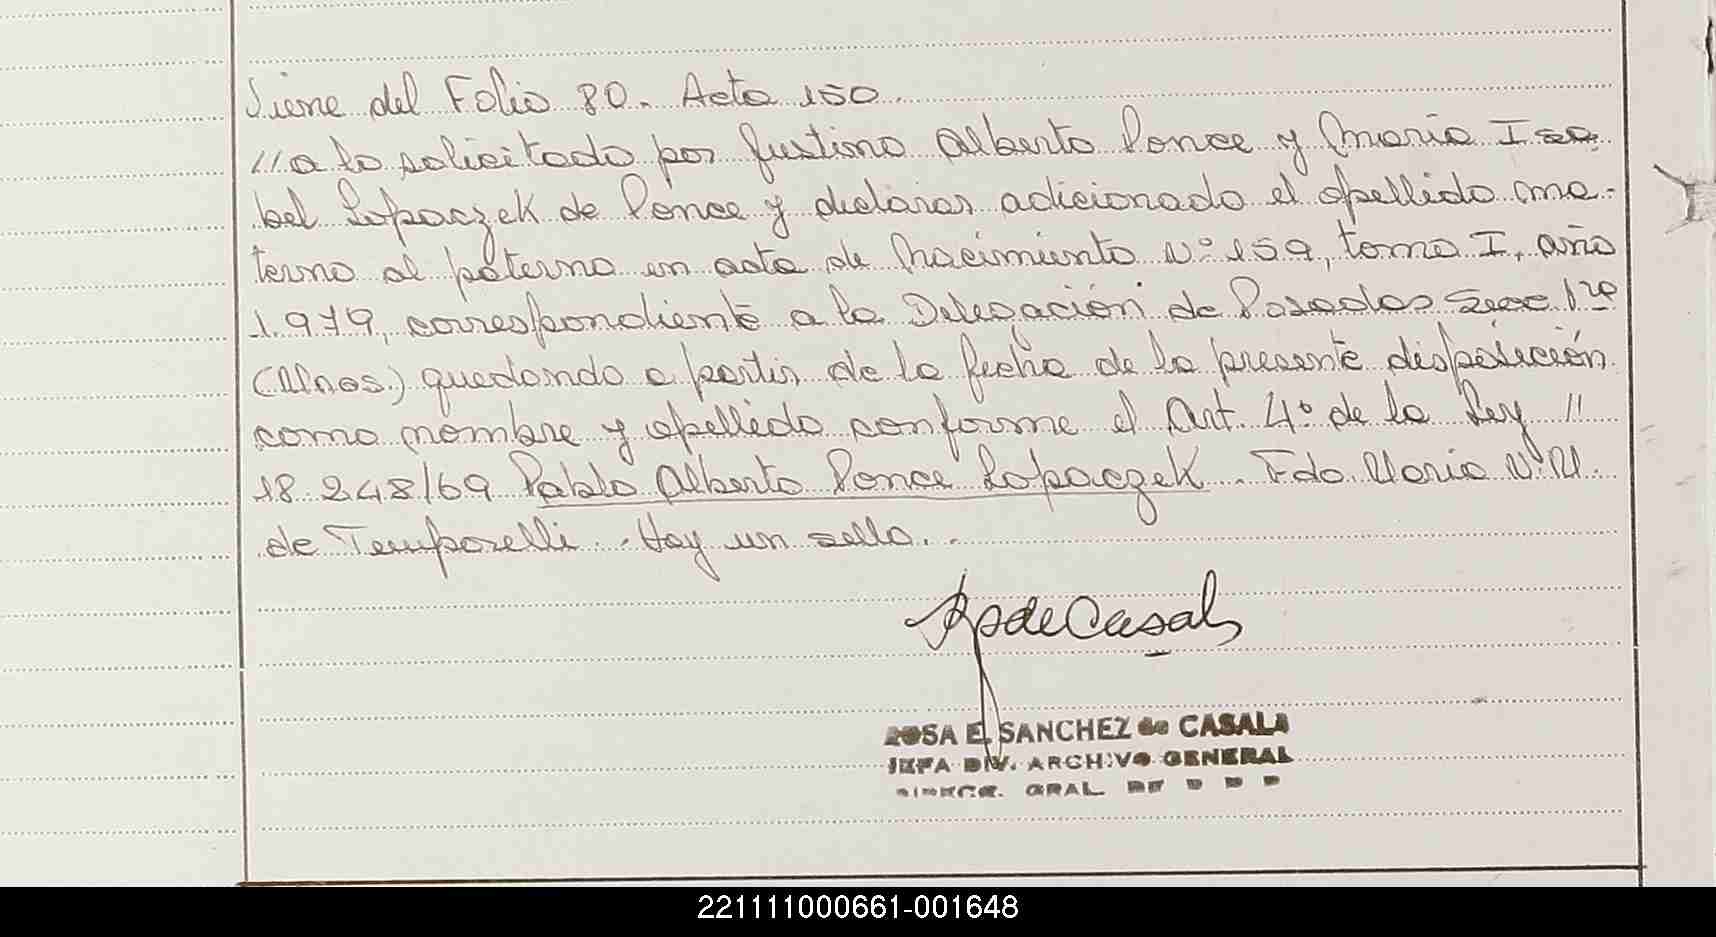 Viene del Folio 80. Acta 150.
//a lo solicitado por Justino Alberto Ponce y María Isa-
bel Lopaczek de Ponce y declarar adicionado el apellido ma-
terno al paterno en acta de Nacimiento Nº 159, tomo I, año
1.979, correspondiente a la Delegación de Posadas Secc 1ra
(Mnes.) quedando a partir de la fecha de la presente disposición
como nombre y apellido conforme el Art. 4º de la Ley //
18.248/69 Pablo Alberto Ponce Lopaczek. Fdo. María
de Temporelli. Hay un sello.
RSdeCasala
ROSA E. SANCHEZ de CASALA
JEFA DIV. ARCHIVO GENERAL
DIRECC. GRAL. DE
221111000661-001648